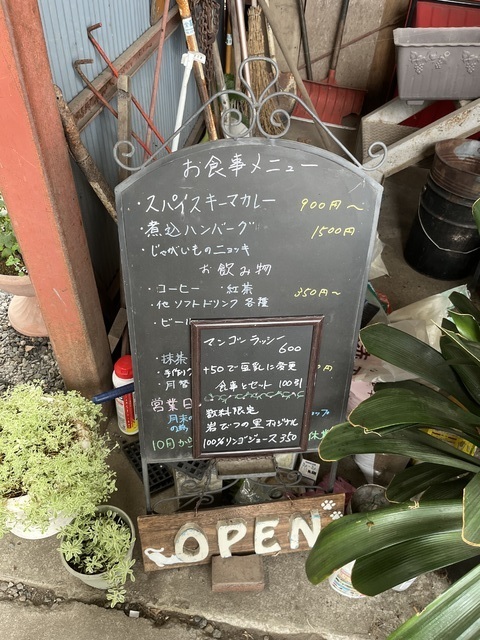 お食事メニュー
・スパイスキーマカレー 900円〜
・煮込ハンバーグ 1500円
・じゃがいものニョッキ
お飲み物
・コーヒー ・紅茶 350円〜
・他 ソフトドリンク 各種
・ビール
・抹茶
・手作り
・月替
営業日
月末
10月か
マンゴーラッシー
600
+50で豆乳に変更
食事とセット 100引
数料限定
岩でつの里オリジナル
100%リンゴジュース 350
OPEN